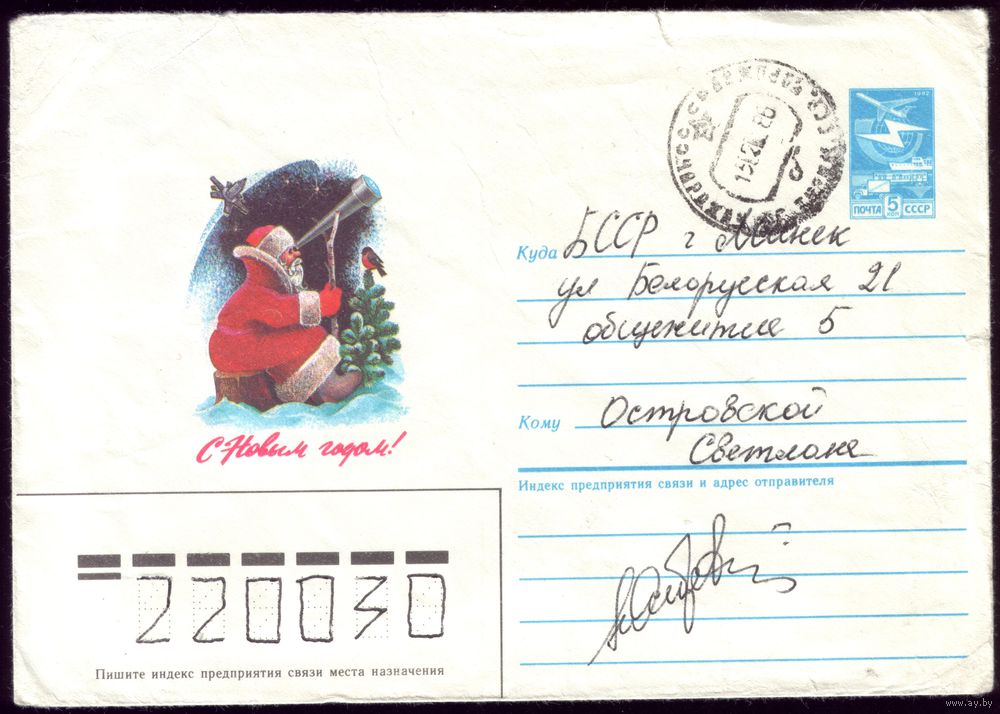 1982
ПОЧТА 5 КОП СССР
Куда БССР г Минск
ул Белорусская 21
общежитие 5
Кому Островской
Светлане
С Новым годом!
Индекс предприятия связи и адрес отправителя
220030
Пишите индекс предприятия связи места назначения
www.ay.by